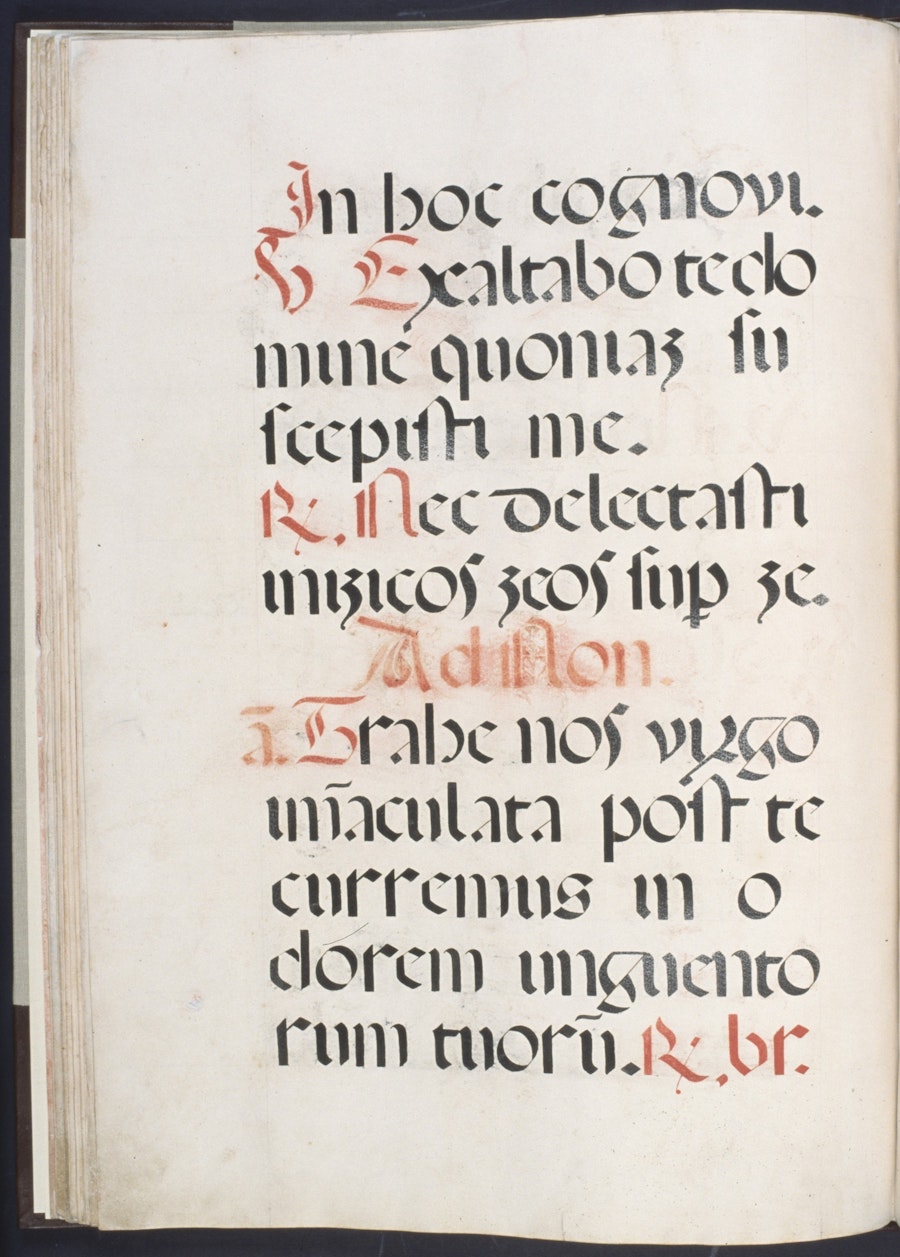 In hoc cognovi.
℣ Exaltabo te do
mine quoniaʒ su
scepisti me.
℟. Nec delectasti
inimicos meos sup me.
Ad Non.
ā. Trahe nos virgo
im̄aculata post te
curremus in o
dórem unguento
rum tuorū. ℟. br.